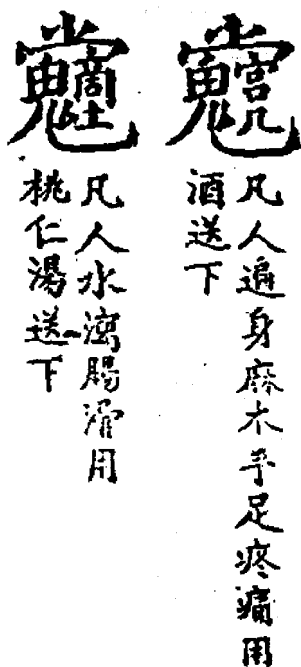 凡人遍身麻木手足疼痛用
酒送下
凡人水瀉腸滑用
桃仁湯送下